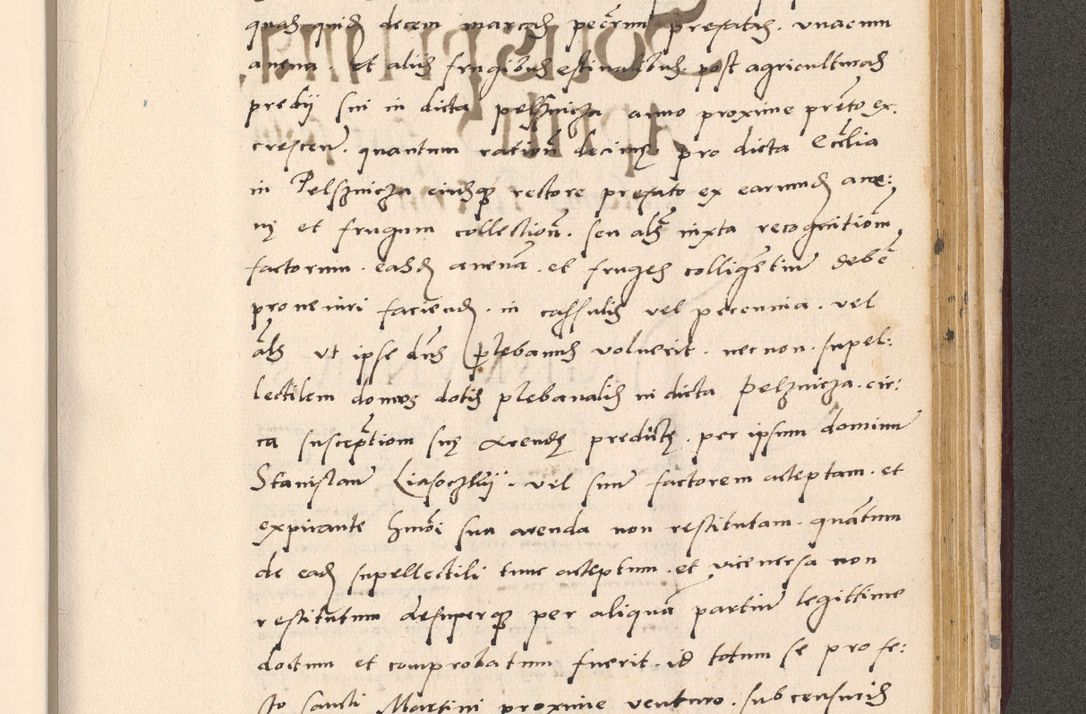 quas quid decem marcas pecunia prefatas. vnacum
auena. et aliis frugibus estiualibus. post agriculturas
predij sui in dicta pelznicza anno proxime prento ex:
crescen. quantum ration decime pro dicta Ecclia
in Pelsznicza eiusque rectore prefato ex earund aue:
ne et frugum collection. seu als iuxta recognition
factorum. easd auenam. et fruges colligentium debe
proueniri faciend. in cassulis vel perennia. vel
als vt ipse dns plebanus voluerit. necnon. supel:
lectilem domus dotis plebanalis in dicta Pelznicza. cir:
ca susceptiom sue arende predicte. per ipsum dominum
Stanislaum Liasoczkij. vel suum factorem acceptam. et
expirante hmoi sua arenda non restitutam. quantum
de ead supellectili tunc acceptum. et viceuersa non
restitutum desuperque per aliquam partium legittime
doctum et comprobatum fuerit. id totum se pro fe:
sto sancti Martini proxime venturo. sub censuris